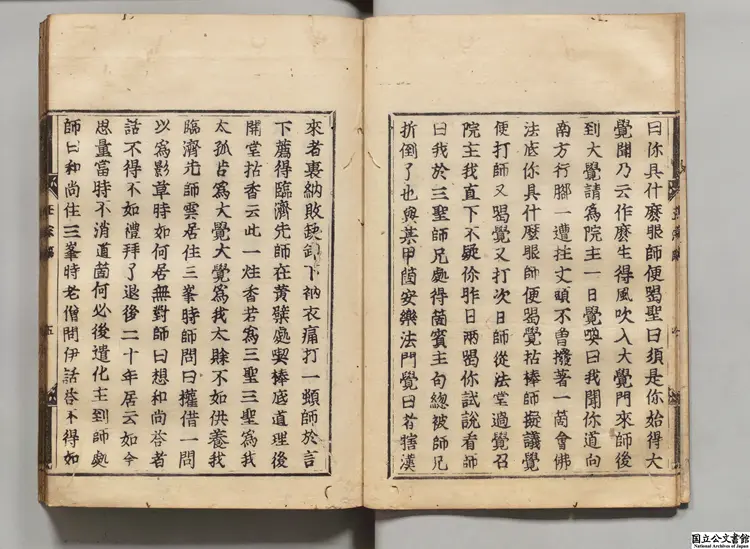 曰你具什麽眼師便喝聖曰須是你始得大
覺聞乃云作麽生得風吹入大覺門來師後
到大覺請爲院主一日覺喚曰我聞你道向
南方行腳一遭拄丈頭不曾撥著一箇會佛
法底你具什麽眼師便喝覺拈棒師擬議覺
便打師又喝覺又打次日師從法堂過覺召
院主我直下不疑你昨日兩喝你試說看師
曰我於三聖師兄處得箇賓主句總被師兄
折倒了也與某甲箇安樂法門覺曰者瞎漢
來者裏納敗缺卸下衲衣痛打一頓師於言
下薦得臨濟先師在黃檗處喫棒底道理後
開堂拈香云此一炷香若爲三聖三聖爲我
太孤若爲大覺大覺爲我太賖不如供養我
臨濟先師雲居住三峯時師問曰權借一問
以爲影草時如何居無對師曰想和尚荅者
話不得不如禮拜了退後二十年居云如今
思量當時不消道箇何必後遣化主到師處
師曰和尚住三峯時老僧問伊話荅不得如
五
国立公文書館
National Archives of Japan